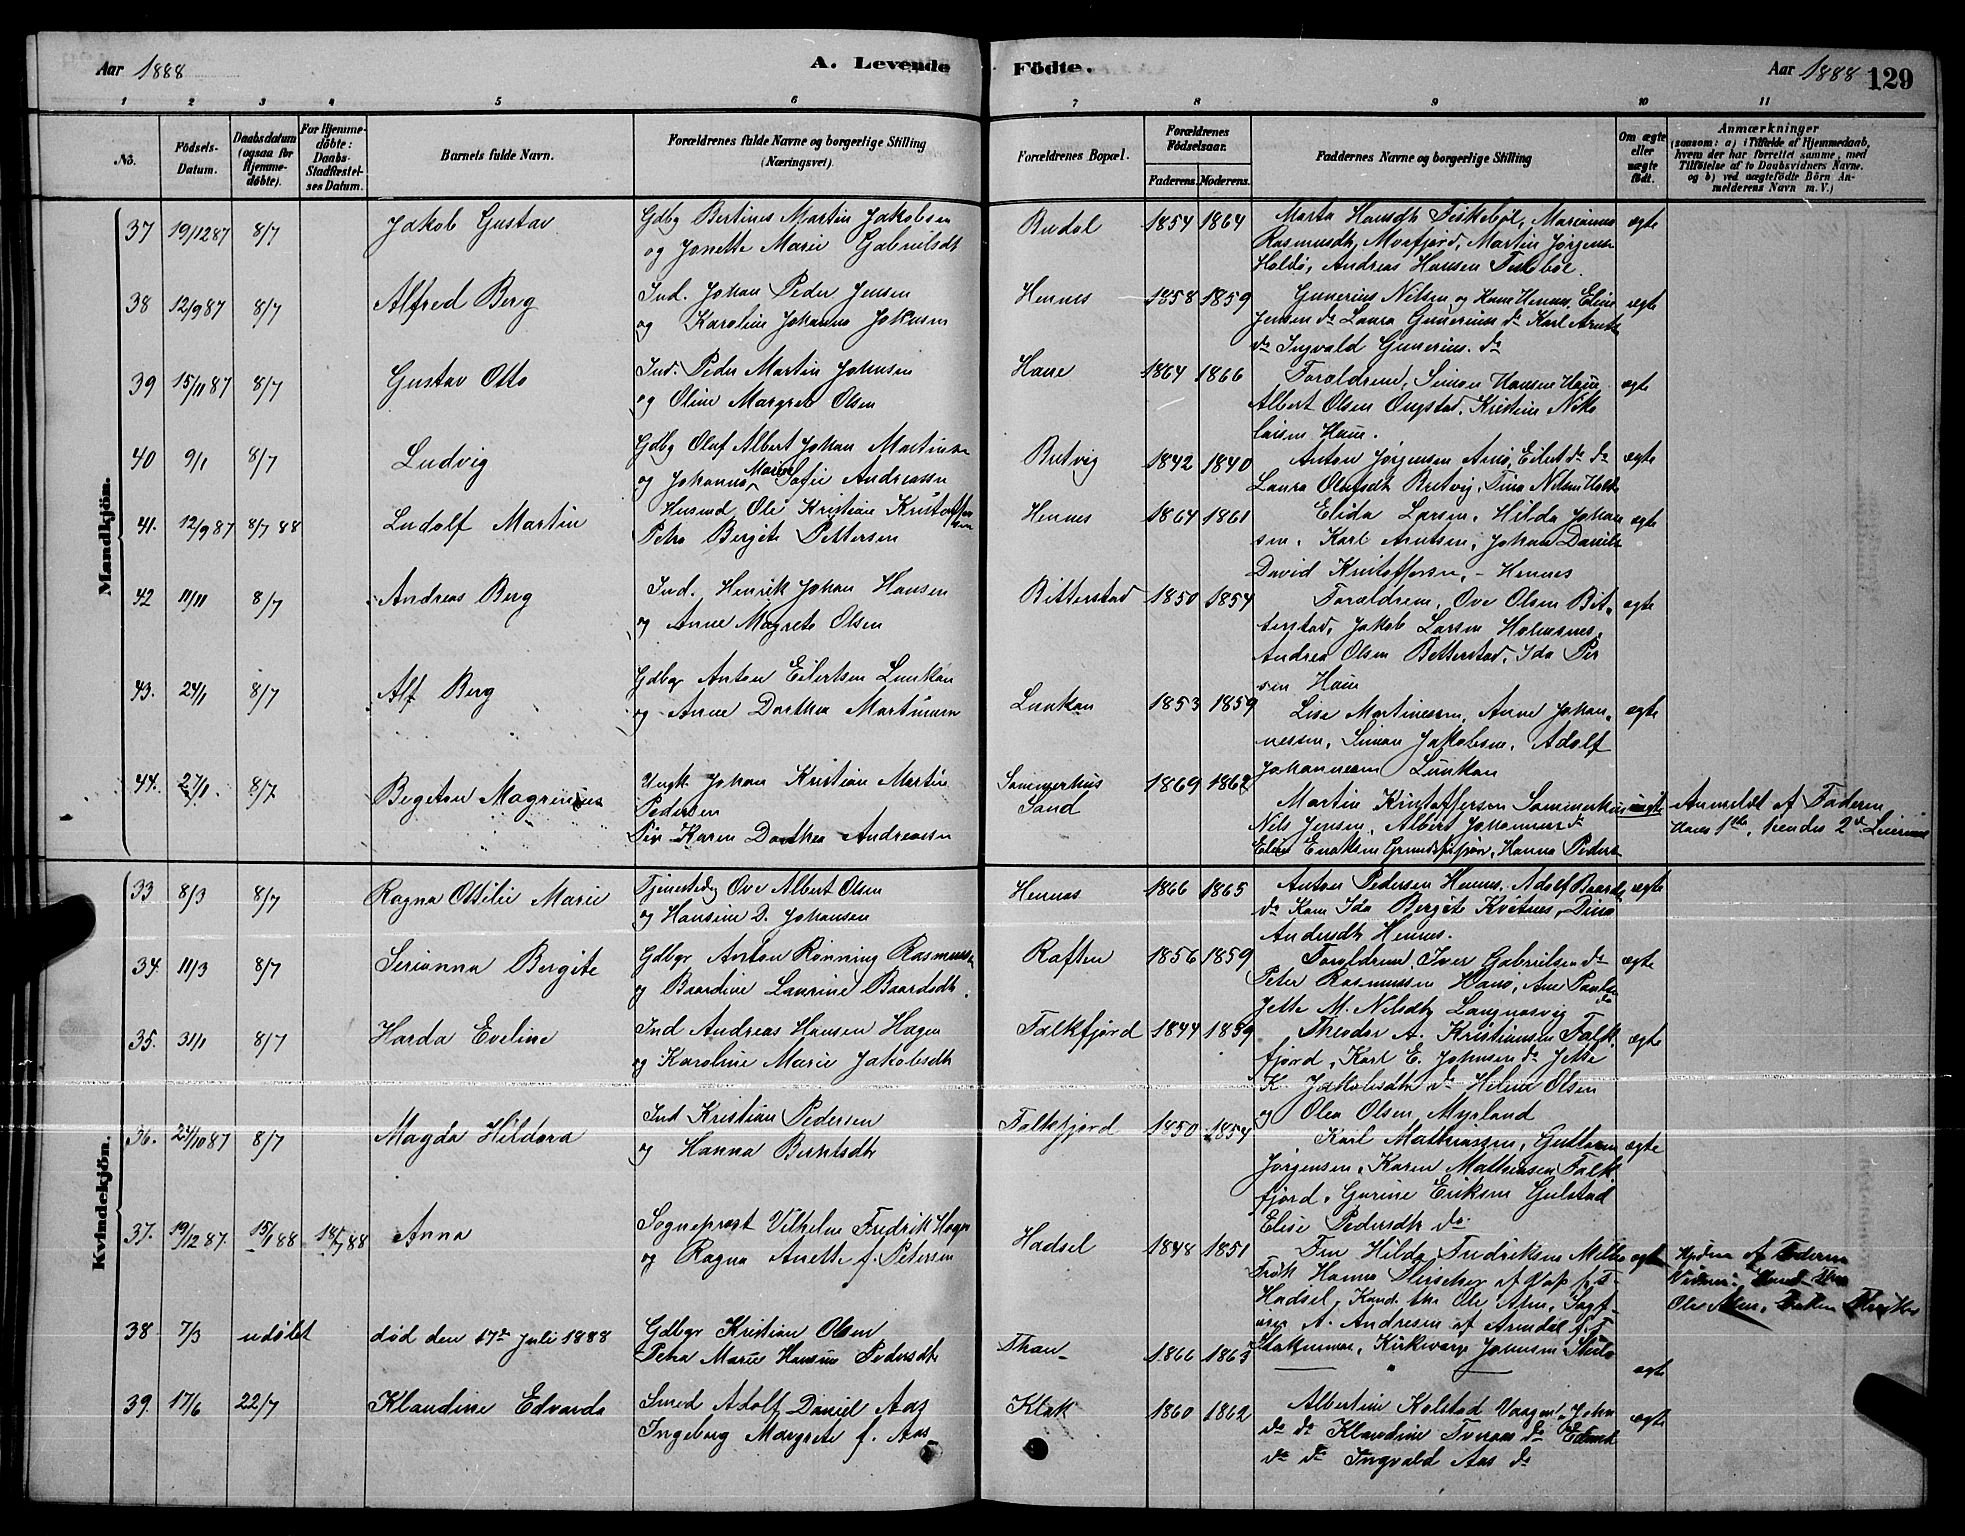 Aar 1888
A. Levende Födte.
Aar 1888
129
1 2 3 4 5 6 7 8 9 10 11
No.
Födsels-
Datum.
Daabsdatum
(ogsaa for
Hjemme-
döbte).
For Hjemme-
döbte:
Daabs-
Stadfæstel-
ses Datum.
Barnets fulde Navn.
Forældrenes fulde Navne og borgerlige Stilling
(Næringsvei).
Forældrenes Bopæl.
Forældrenes
Födselsaar.
Faderens. Moderens.
Faddernes Navne og borgerlige Stilling
Om ægte
eller
uægte
födt.
Anmærkninger
(saasom: a) i Tilfælde af Hjemmedaab,
hvem der har forrettet samme, med
Tilföielse af to Daabsvidners Navne.
og b) ved uægtefödte Börn An-
melderens Navn m. V.)
Mandkjön.
37 19/12 87 8/7 Jakob Gustav
Gdbg Bertines Martin Jakobsen
og Jonette Marie Gabrielsdt
Budal 1854 1864
Marta Hansdt Fiskebøl, Marianne
Rasmusdt, Morfjord, Martin Jørgensen
Holdø, Andreas Hansen Fiskebøl.
ægte
38 12/9 87 8/7 Alfred Berg
Ind. Johan Peder Jensen
og Karoline Johanna Johnsen
Hennes 1858 1859
Gunerius Nilsen og Kone Hennes, Eline
Jensen do Laura Gunerius do Karl Arnts
do Ingvald Gunerius. do
ægte
39 15/11 87 8/7 Gustav Otto
Ind. Peder Martin Johnsen
og Oline Margrete Olsen
Hane 1864 1866
Forældrene, Simon Hansen Hane
Albert Olsen Ongstad, Kristine Niko
laisen Hane.
ægte
40 9/1 8/7 Ludvig
Gdbg Oluf Albert Johan Martinsen
og Johanna Marie Sofie Andreassen
Butvig 1842 1840
Anton Jørgensen Arnø, Eilert do do
Laura Olufsdt Butvig, Tina Nilsen
ægte
41. 12/9 87 8/7 88 Ludolf Martin
Husmd Ole Kristian Kristoffersen
Petra Bergite Pettersen
Hennes 1864 1861
Elida Larsen, Hilda Johan
sen, Karl Arntsen, Johan Daniels
David Kristoffersen, - Hennes
ægte
42 11/11 8/7 Andreas Berg
Ind. Henrik Johan Hansen
og Anne Magrete Olsen
Bitterstad 1850 1854
Forældrene, Ove Olsen Bit-
terstad, Jakob Larsen Holmsnes,
Andrea Olsen Bitterstad, Ida Per
sen Hane
ægte
43. 24/1 8/7 Alf Berg
Gdbgr Anton Eilertsen Lunkan
og Anne Dorthea Martinsen
Lunkan 1853 1859
Lise Martinessen, Anne Johan-
nessen, Simon Jakobsen, Adolf
Johannesen Lunkan
ægte
44. 27/1 8/7 Begeton Magrenius
Ungk. Johan Kristian Martin
Pedersen
Pige Karen Dorthea Andreassen
Sommerhus
Sand
1869 1862
Martin Kristoffersen Sommerhus
Nils Jensen, Albert Johannesen do
Eline Eriksen, Hanna Peders
uægte
Anmeldt af Faderen
Hans 1ste, hendes 2d Leiermaal
Kvindekjön.
33 8/3 8/7 Ragna Ottilie Marie
Tjenestedrg Ove Albert Olsen
og Hansine D. Johansen
Hennes 1866 1865
Anton Pedersen Hennes, Adolf Baards
do Kone Ida Bergite Kvitnes, Dina
Andersdt Hennes.
ægte
34. 11/3 8/7 Serianna Bergite
Gdbgr Anton Rønning Rasmussen
og Baardine Laurine Baardsdt.
Raften 1856 1859
Forældrene, Iver Gabrielsen do
Peter Rasmussen Hanø, Ane Pauls do
Jette M. Nilsdt Langnæsvig
ægte
35. 31/1 8/7 Harda Eveline
Ind Andreas Hansen Hagen
og Karoline Marie Jakobsdt
Falkfjord 1844 1859
Theodor A. Kristiansen Falk
fjord, Karl E. Johnsen do Jette
K. Jakobsdt do Helene Olsen
og Olea Olsen Myrland
ægte
36. 24/10 87 8/7 Magda Hildora
Ind Kristian Pedersen
og Hanna Berntsdt
Falkfjord 1850 1854
Karl Mathiassen, Guttorm
Jørgensen, Karen Mathiasen Falk
fjord, Gurine Eriksen Gulstad
Elise Pedersdt do.
ægte
37. 19/12 87. 15/1 88 18/7 88 Anna
Sogneprest Vilhelm Fredrik Hagen
og Ragna Anette f. Petersen
Hadsel 1848 1851
Fru Hilda Fredriksen Melbo
Frøk Hanna
Hadsel, Kand. the Ole Alm, Sagf-
ører A. Andresen af Arendal f. T.
Stokmarknes, Kirkeværge Johnsen
ægte
Hjdøbt af Faderen
38 7/3 udøbt død den 17de Juli 1888
Gdbgr Kristian Olsen
Petra Marie Hansine Pedersdt
1866 1863
ægte
39. 17/6 22/7 Klaudine Edvarda
Smed Adolf Daniel Aas
Ingeborg Margrete f. Aas
Klak 1860 1862
Albertine Kolstad Vaagen, John
do do Klaudine do Edvard
do do Ingvald Aas do
ægte